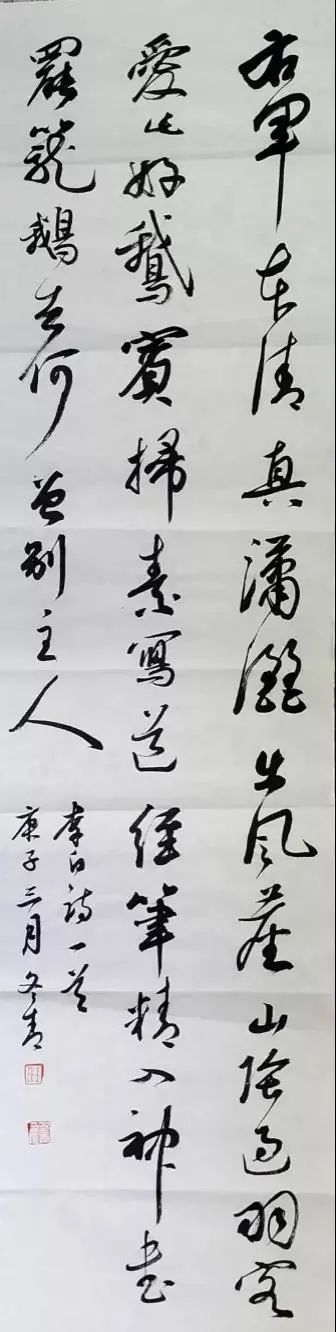 右軍本清真瀟灑出風塵山陰過羽客
愛此好鵝賓掃素寫道經筆精入神書
罷籠鵝去何曾別主人
李白詩一首
庚子三月冬青